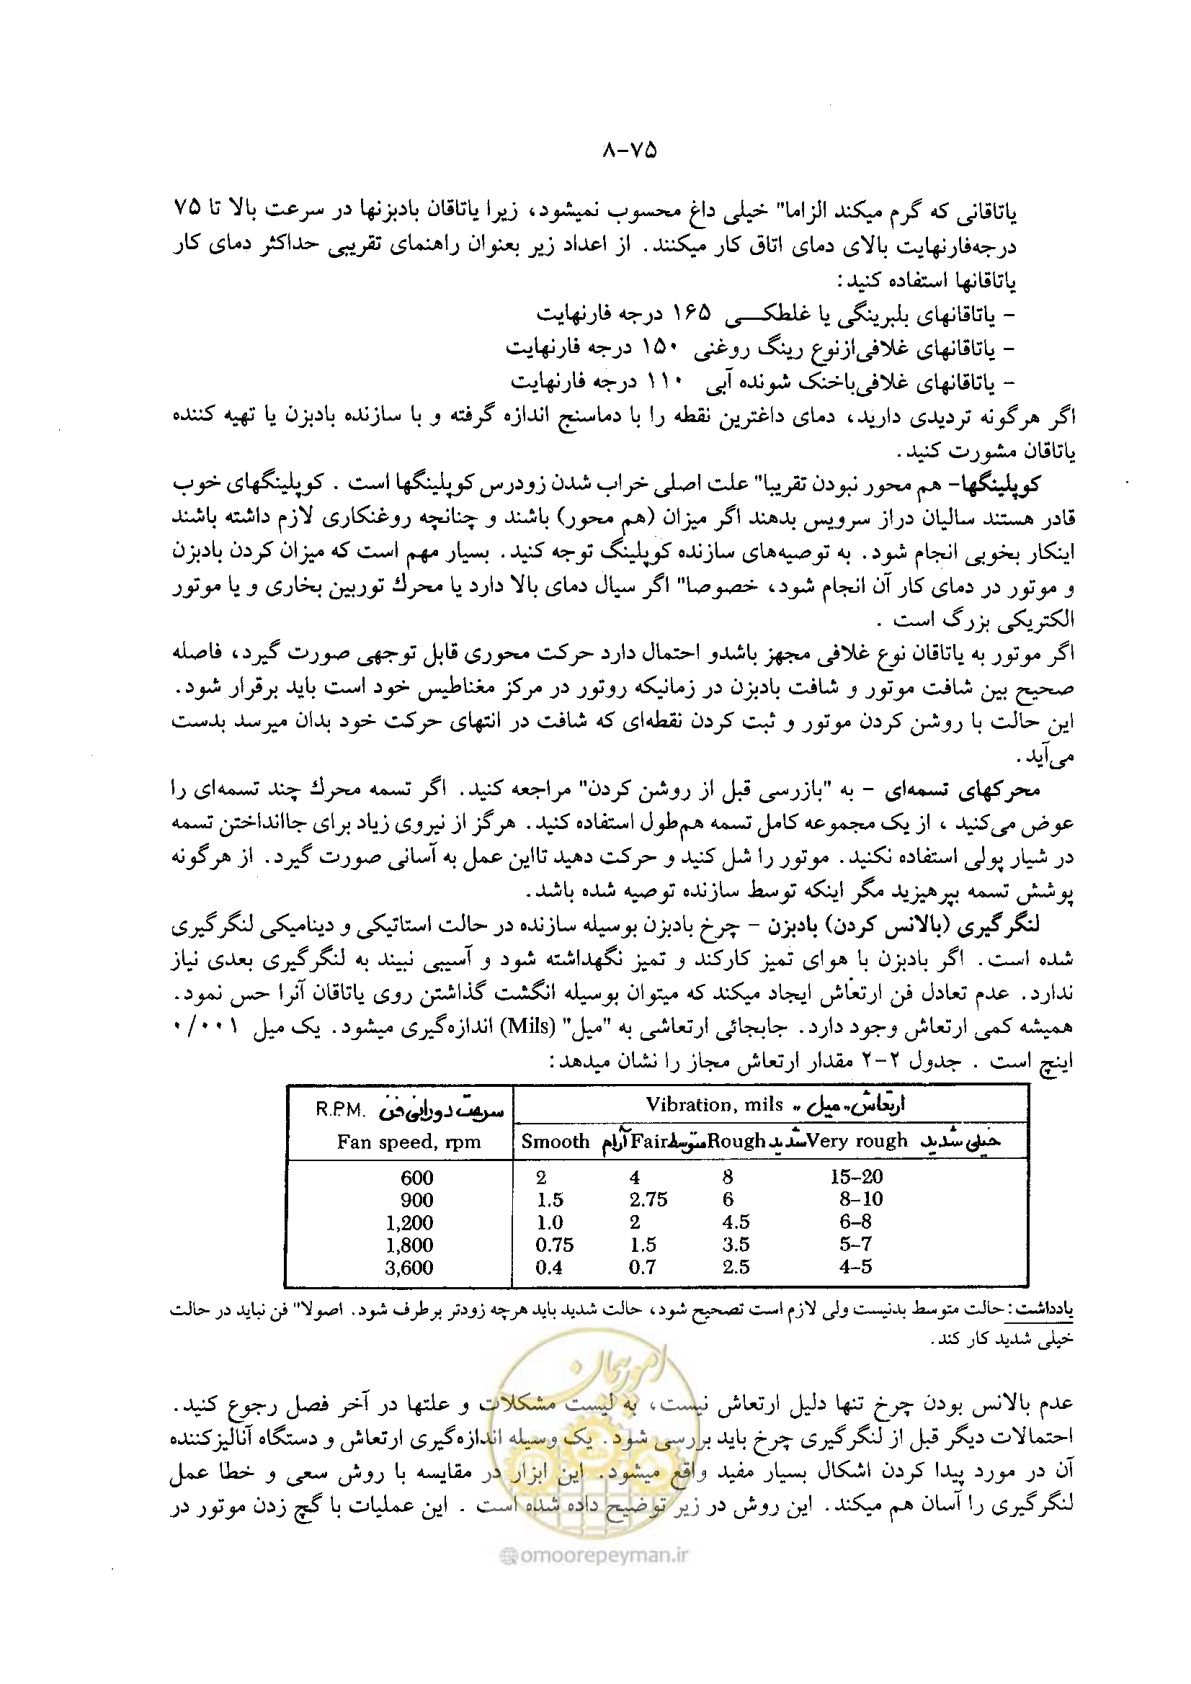 ۸-۷۵
یاتاقانی که گرم میکند الزاما" خیلی داغ محسوب نمیشود، زیرا یاتاقان بادبزنها در سرعت بالا تا ۷۵
درجه‌فارنهایت بالای دمای اتاق کار میکنند. از اعداد زیر بعنوان راهنمای تقریبی حداکثر دمای کار
یاتاقانها استفاده کنید:
- یاتاقانهای بلبرینگی یا غلطکـــی ۱۶۵ درجه فارنهایت
- یاتاقانهای غلافی‌ازنوع رینگ روغنی ۱۵۰ درجه فارنهایت
- یاتاقانهای غلافی‌باخنک شونده آبی ۱۱۰ درجه فارنهایت
اگر هرگونه تردیدی دارید، دمای داغترین نقطه را با دماسنج اندازه گرفته و با سازنده بادبزن یا تهیه کننده
یاتاقان مشورت کنید.
کوپلینگها- هم محور نبودن تقریبا" علت اصلی خراب شدن زودرس کوپلینگها است . کوپلینگهای خوب
قادر هستند سالیان دراز سرویس بدهند اگر میزان (هم محور) باشند و چنانچه روغنکاری لازم داشته باشند
اینکار بخوبی انجام شود. به توصیه‌های سازنده کوپلینگ توجه کنید. بسیار مهم است که میزان کردن بادبزن
و موتور در دمای کار آن انجام شود، خصوصا" اگر سیال دمای بالا دارد یا محرك توربین بخاری و یا موتور
الکتریکی بزرگ است .
اگر موتور به یاتاقان نوع غلافی مجهز باشدو احتمال دارد حرکت محوری قابل توجهی صورت گیرد، فاصله
صحیح بین شافت موتور و شافت بادبزن در زمانیکه روتور در مرکز مغناطیس خود است باید برقرار شود.
این حالت با روشن کردن موتور و ثبت کردن نقطه‌ای که شافت در انتهای حرکت خود بدان میرسد بدست
می‌آید.
محرکهای تسمه‌ای - به "بازرسی قبل از روشن کردن" مراجعه کنید. اگر تسمه محرك چند تسمه‌ای را
عوض می‌کنید ، از یک مجموعه کامل تسمه هم‌طول استفاده کنید. هرگز از نیروی زیاد برای جاانداختن تسمه
در شیار پولی استفاده نکنید. موتور را شل کنید و حرکت دهید تااین عمل به آسانی صورت گیرد. از هرگونه
پوشش تسمه بپرهیزید مگر اینکه توسط سازنده توصیه شده باشد.
لنگرگیری (بالانس کردن) بادبزن - چرخ بادبزن بوسیله سازنده در حالت استاتیکی و دینامیکی لنگرگیری
شده است. اگر بادبزن با هوای تمیز کارکند و تمیز نگهداشته شود و آسیبی نبیند به لنگرگیری بعدی نیاز
ندارد. عدم تعادل فن ارتعاش ایجاد میکند که میتوان بوسیله انگشت گذاشتن روی یاتاقان آنرا حس نمود.
همیشه کمی ارتعاش وجود دارد. جابجائی ارتعاشی به "میل" (Mils) اندازه‌گیری میشود. یک میل ۰/۰۰۱
اینچ است . جدول ۲-۲ مقدار ارتعاش مجاز را نشان میدهد:
R.P.M. سرعت دورانی فن Vibration, mils ارتعاش، میل
Fan speed, rpm Smooth آرام Fair متوسط Rough شدید Very rough خیلی شدید
600 2 4 8 15-20
900 1.5 2.75 6 8-10
1,200 1.0 2 4.5 6-8
1,800 0.75 1.5 3.5 5-7
3,600 0.4 0.7 2.5 4-5
یادداشت: حالت متوسط بدنیست ولی لازم است تصحیح شود، حالت شدید باید هرچه زودتر برطرف شود. اصولا" فن نباید در حالت
خیلی شدید کار کند.
عدم بالانس بودن چرخ تنها دلیل ارتعاش نیست، به لیست مشکلات و علتها در آخر فصل رجوع کنید.
احتمالات دیگر قبل از لنگرگیری چرخ باید بررسی شود. یک وسیله اندازه‌گیری ارتعاش و دستگاه آنالیزکننده
آن در مورد پیدا کردن اشکال بسیار مفید واقع میشود. این ابزار در مقایسه با روش سعی و خطا عمل
لنگرگیری را آسان هم میکند. این روش در زیر توضیح داده شده است . این عملیات با گچ زدن موتور در
امور پیمان
@omoorepeyman.ir